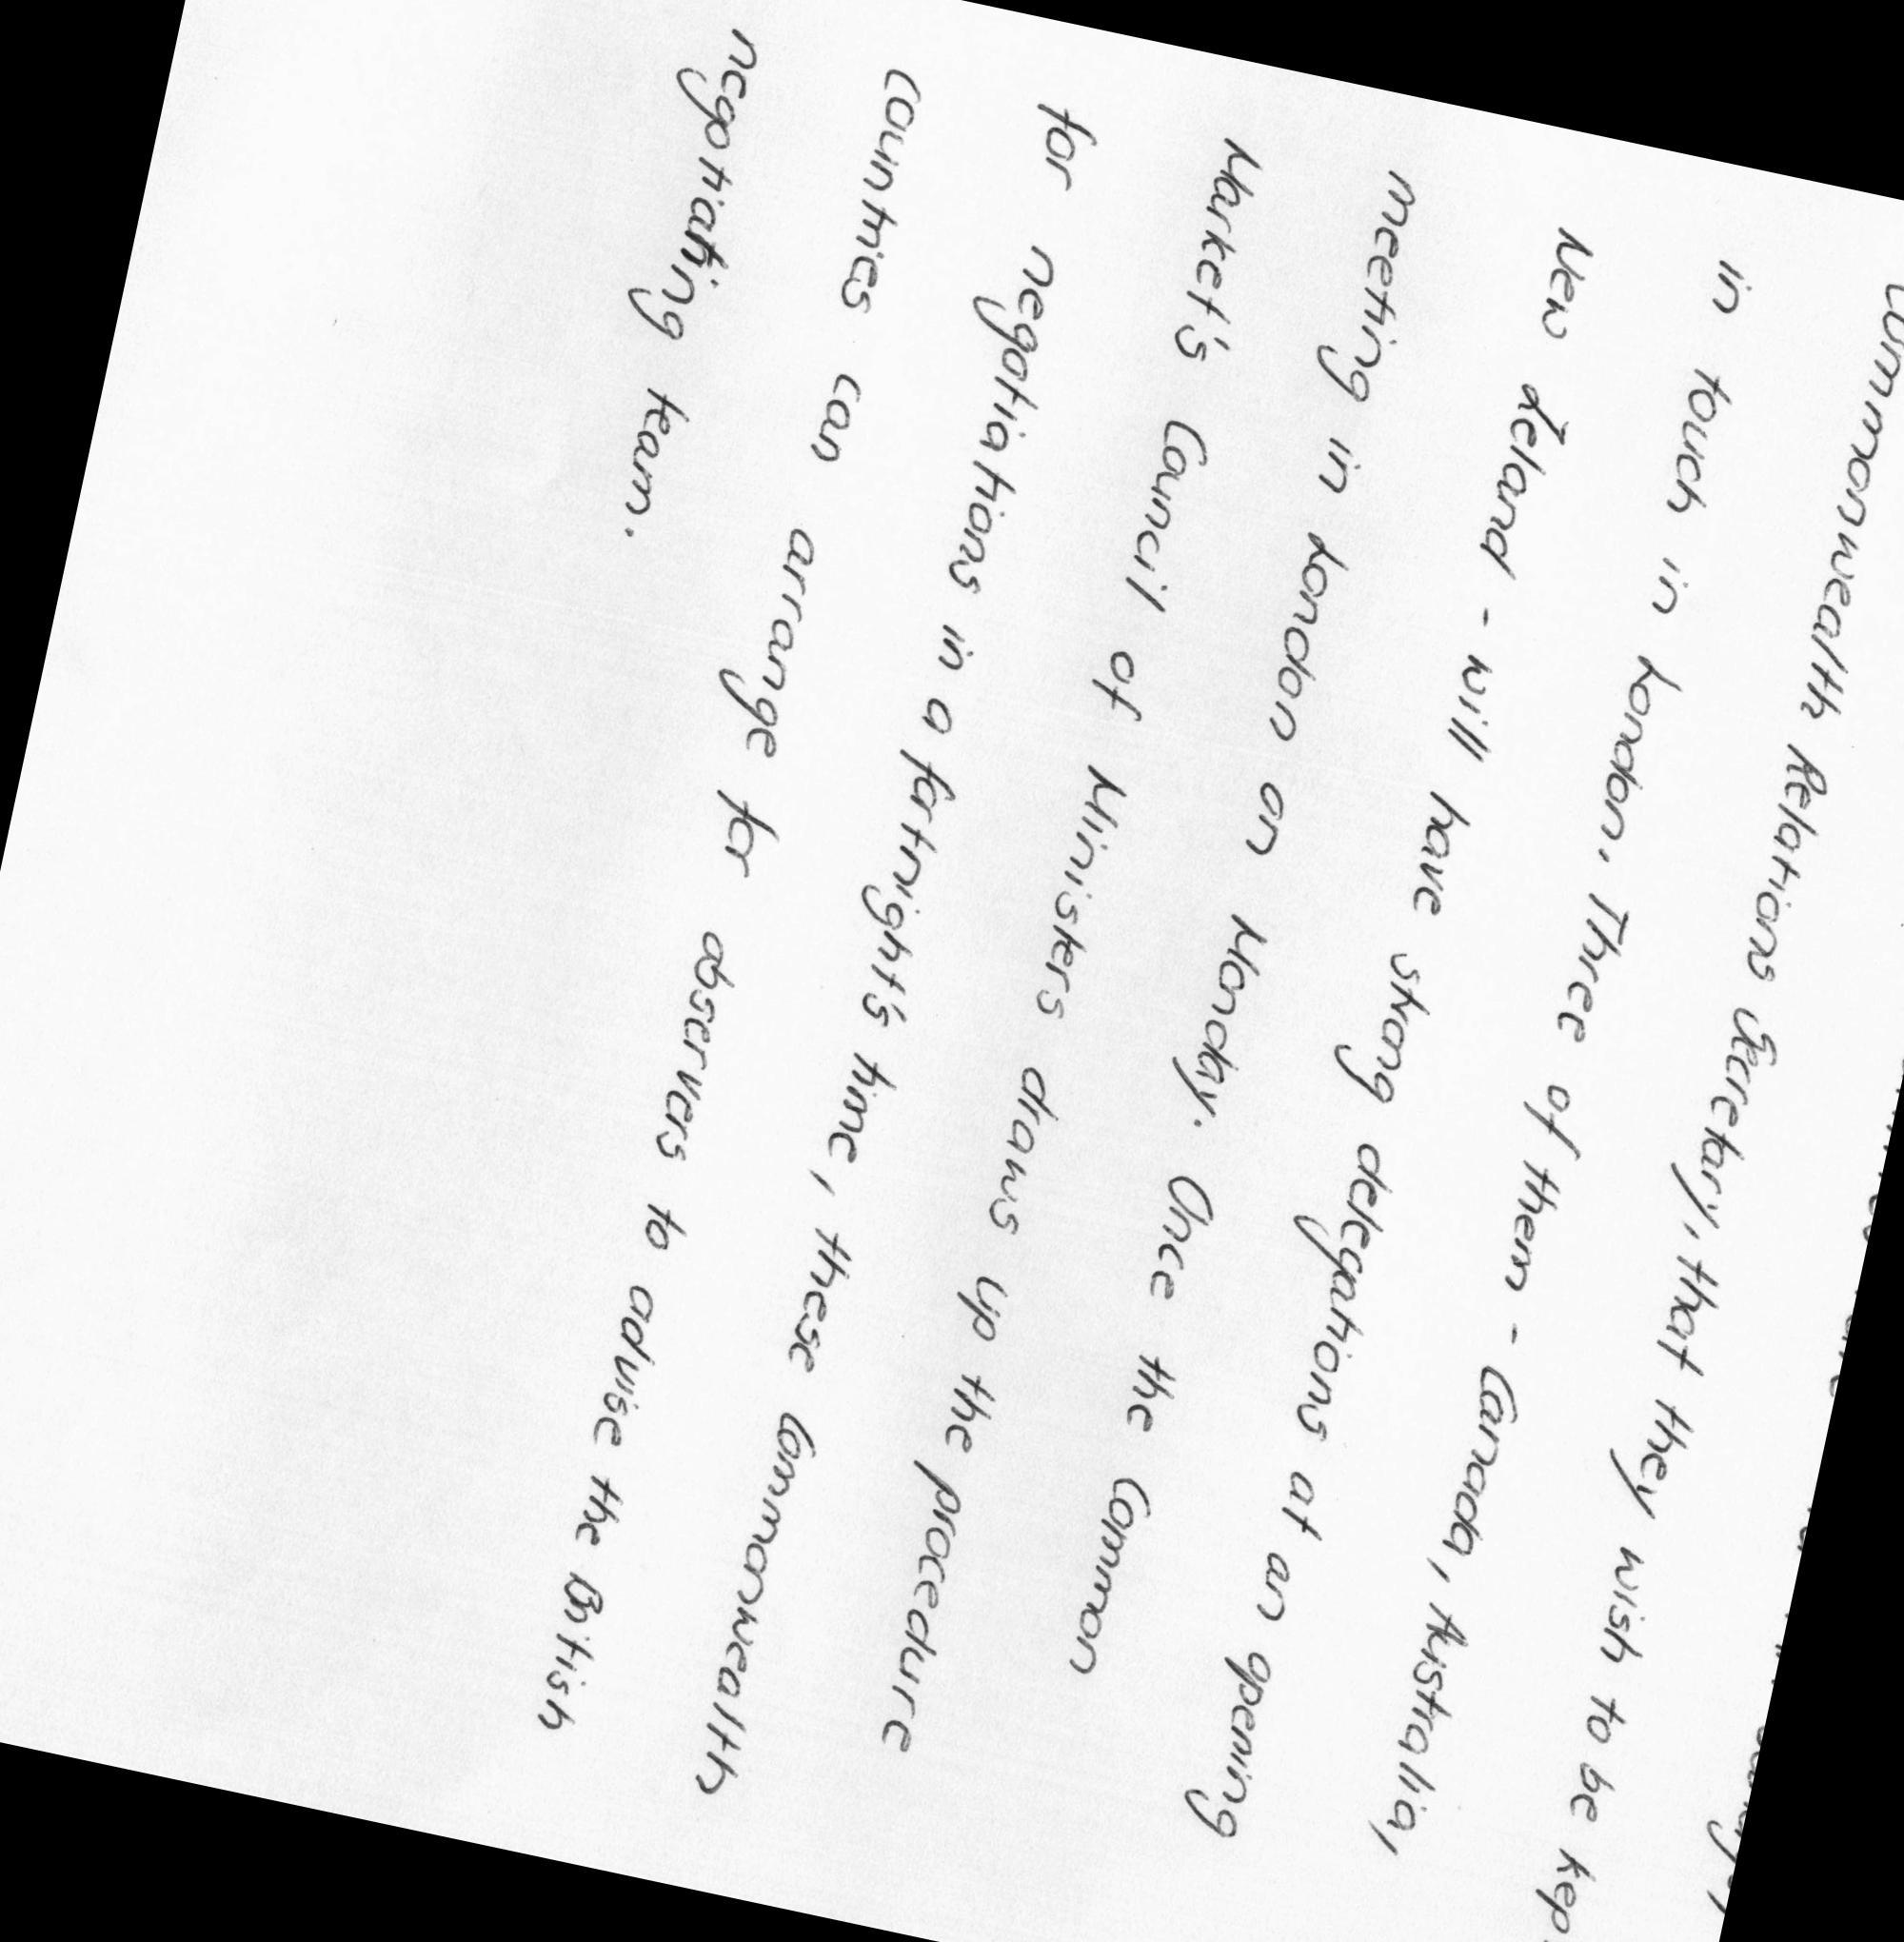 Commonwealth Relations Secretary, that they wish to be
in touch in London. Three of them - Canada, Australia,
New Zeland - will have strong delegations at an opening
meeting in London on Monday. Once the Common
Market's Council of Ministers draws up the procedure
for negotiations in a fortnight's time, these Commonwealth
countries can arrange for observers to advise the British
negotiating team.